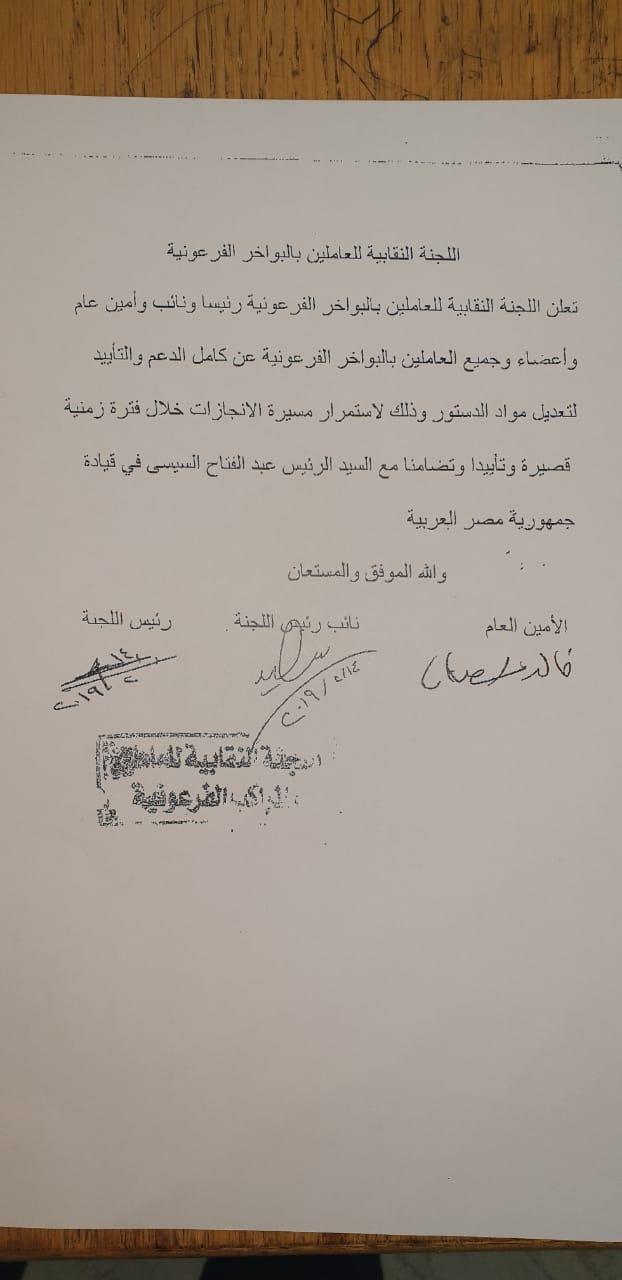 اللجنة النقابية للعاملين بالبواخر الفرعونية
تعلن اللجنة النقابية للعاملين بالبواخر الفرعونية رئيسا ونائب وأمين عام
وأعضاء وجميع العاملين بالبواخر الفرعونية عن كامل الدعم والتأييد
لتعديل مواد الدستور وذلك لاستمرار مسيرة الانجازات خلال فترة زمنية
قصيرة وتأييدا وتضامنا مع السيد الرئيس عبد الفتاح السيسى في قيادة
جمهورية مصر العربية
والله الموفق والمستعان
الأمين العام نائب رئيس اللجنة رئيس اللجنة
خالد
٢٠١٩/٢/١٤
النقابية للعاملين
الفرعونية